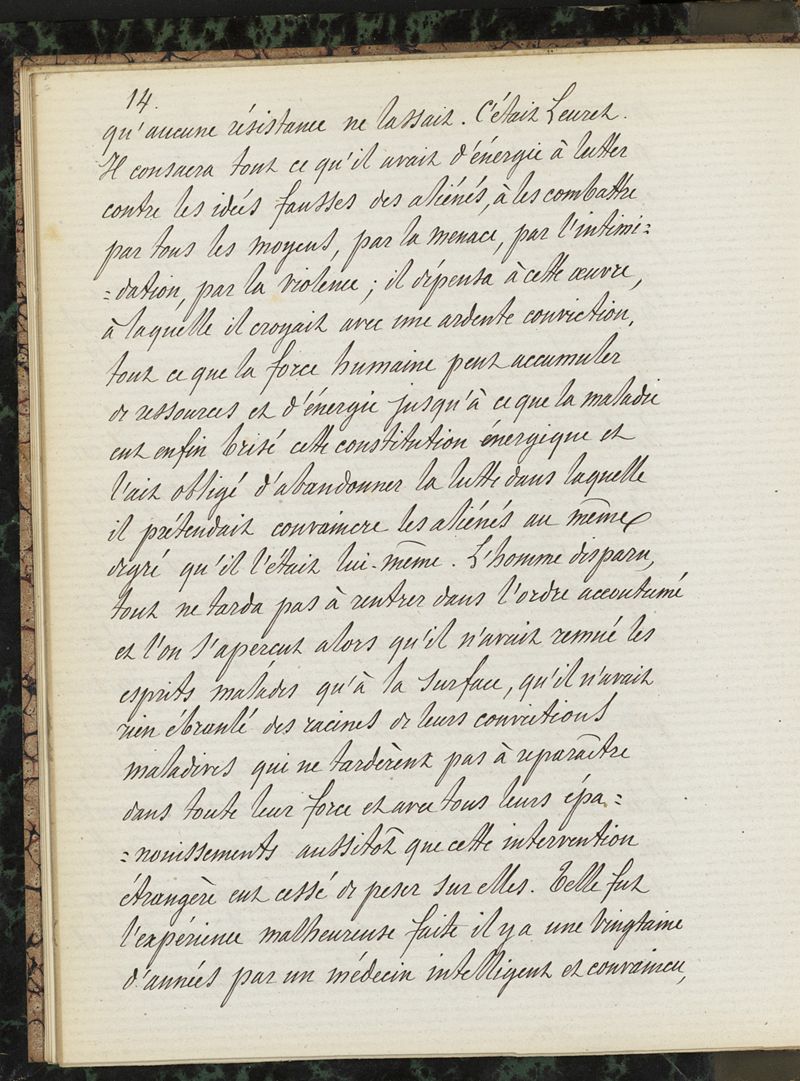 14.
qu'aucune résistance ne lassait. C'était Leuret.
Il consacra tout ce qu'il avait d'énergie à lutter
contre les idées fausses des aliénés, à les combattre
par tous les moyens, par la menace, par l'intimi=
=dation, par la violence ; il dépensa à cette œuvre,
à laquelle il croyait avec une ardente conviction,
tout ce que la force humaine peut accumuler
de ressources et d'énergie jusqu'à ce que la maladie
eut enfin brisé cette constitution énergique et
l'ait obligé d'abandonner la lutte dans laquelle
il prétendait convaincre les aliénés au même
degré qu'il l'était lui-même. L'homme disparu,
tout ne tarda pas à rentrer dans l'ordre accoutumé
et l'on s'apercut alors qu'il n'avait remué les
esprits malades qu'à la surface, qu'il n'avait
rien ébranlé des racines de leurs convictions
maladives qui ne tardèrent pas à reparaître
dans toute leur force et avec tous leurs épa=
=nouissements aussitôt que cette intervention
étrangère eut cessé de peser sur elles. Telle fut
l'expérience malheureuse faite il y a une vingtaine
d'années par un médecin intelligent et convaincu,